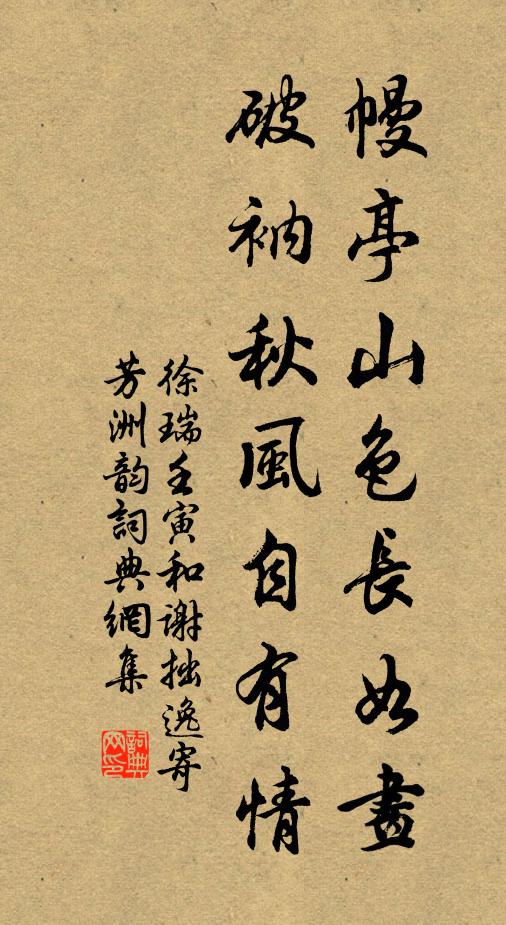 幔亭山色長如畫
破衲秋風自有情
徐瑞壬寅和謝拙逸寄
芳洲韵詞典網集
詞典网印